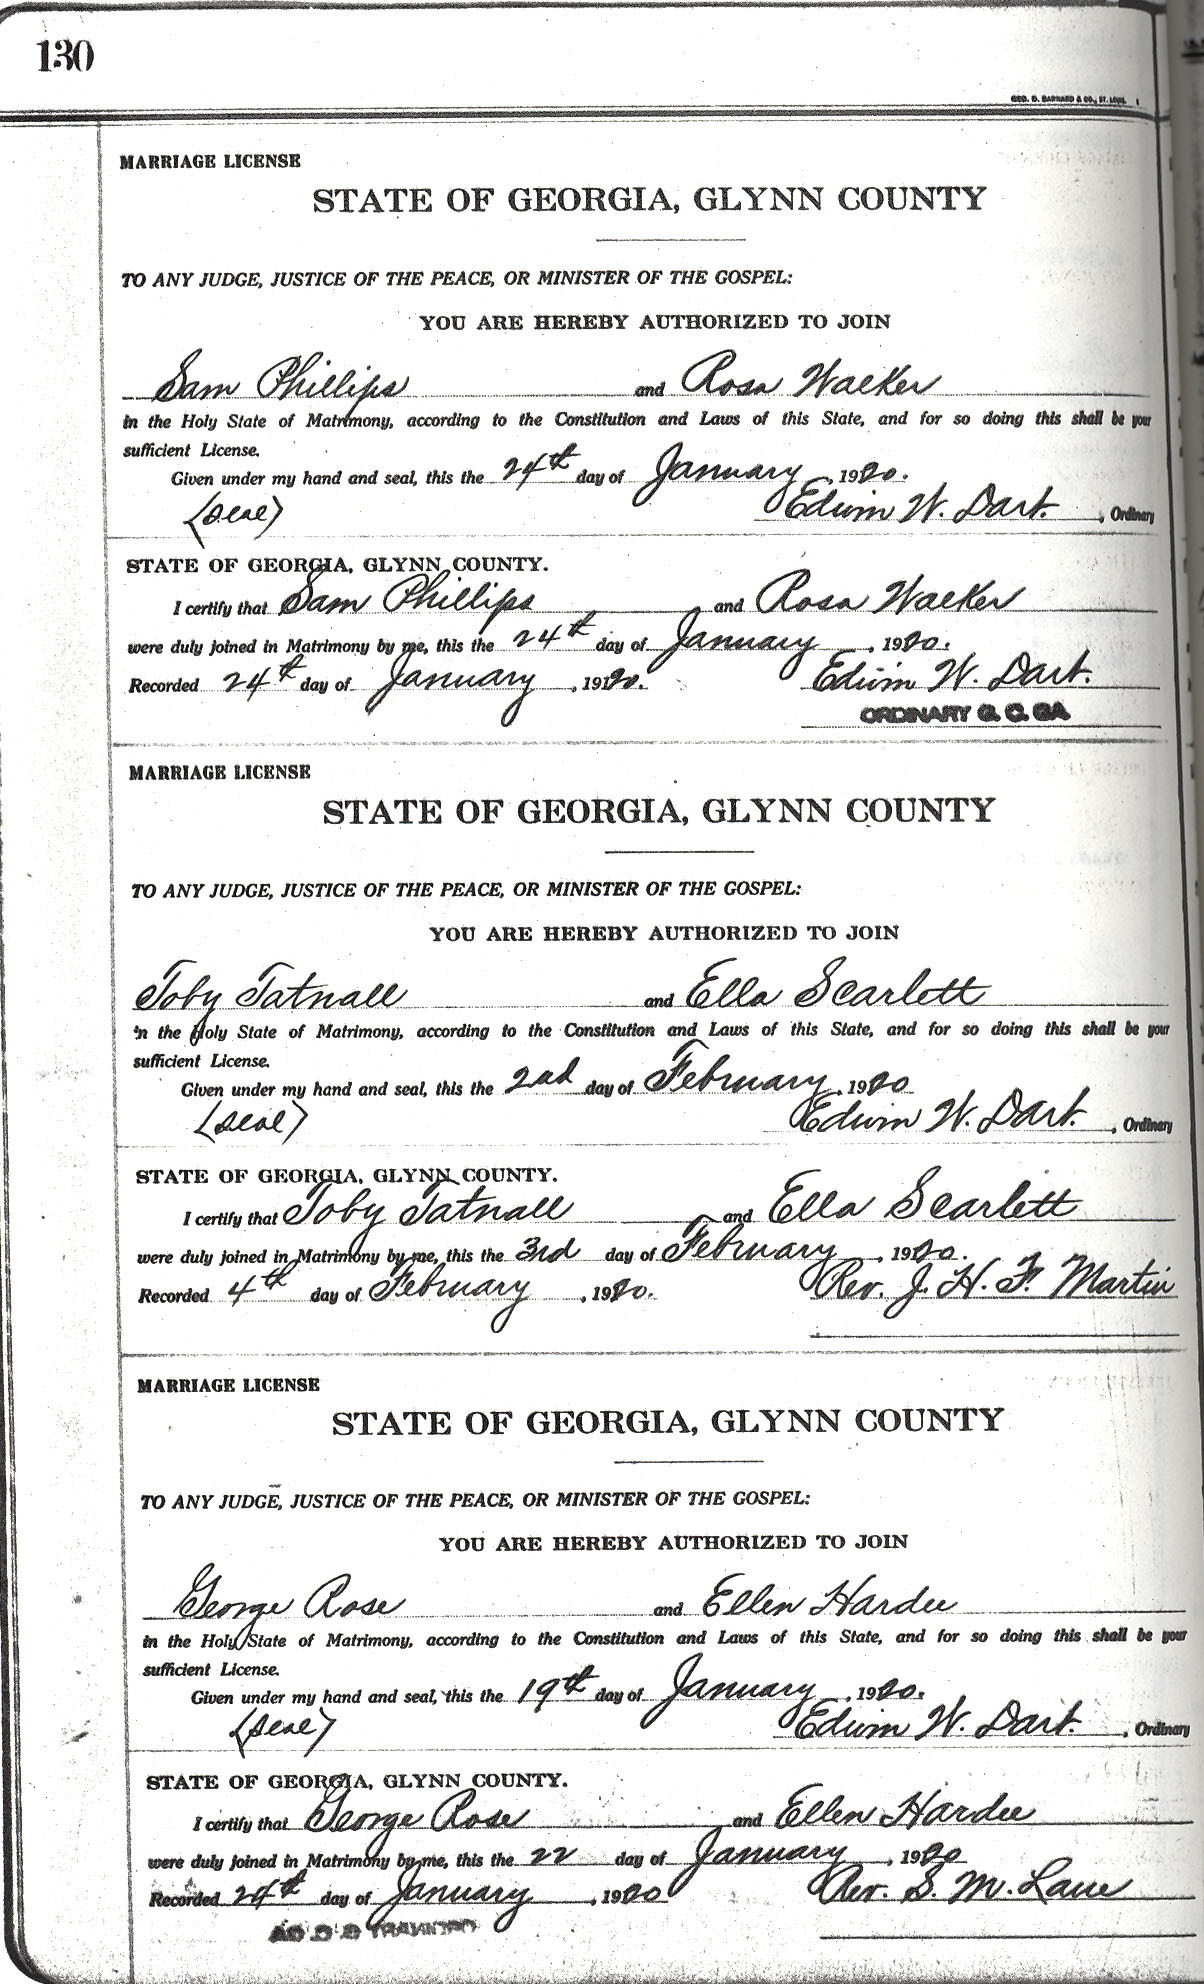 130
GEO. D. BARNARD & CO., ST. LOUIS.
MARRIAGE LICENSE
STATE OF GEORGIA, GLYNN COUNTY
TO ANY JUDGE, JUSTICE OF THE PEACE, OR MINISTER OF THE GOSPEL:
YOU ARE HEREBY AUTHORIZED TO JOIN
Sam Phillips and Rosa Walker
in the Holy State of Matrimony, according to the Constitution and Laws of this State, and for so doing this shall be your
sufficient License.
Given under my hand and seal, this the 24th day of January, 1920.
(Seal) Edwin W. Dart., Ordinary
STATE OF GEORGIA, GLYNN COUNTY.
I certify that Sam Phillips and Rosa Walker
were duly joined in Matrimony by me, this the 24th day of January, 1920.
Recorded 24th day of January, 1920. Edwin W. Dart.
ORDINARY G. C. GA
MARRIAGE LICENSE
STATE OF GEORGIA, GLYNN COUNTY
TO ANY JUDGE, JUSTICE OF THE PEACE, OR MINISTER OF THE GOSPEL:
YOU ARE HEREBY AUTHORIZED TO JOIN
Toby Tatnall and Ella Scarlett
in the Holy State of Matrimony, according to the Constitution and Laws of this State, and for so doing this shall be your
sufficient License.
Given under my hand and seal, this the 2nd day of February, 1920
(Seal) Edwin W. Dart., Ordinary
STATE OF GEORGIA, GLYNN COUNTY.
I certify that Toby Tatnall and Ella Scarlett
were duly joined in Matrimony by me, this the 3rd day of February, 1920.
Recorded 4th day of February, 1920. Rev. J. H. F. Martin
MARRIAGE LICENSE
STATE OF GEORGIA, GLYNN COUNTY
TO ANY JUDGE, JUSTICE OF THE PEACE, OR MINISTER OF THE GOSPEL:
YOU ARE HEREBY AUTHORIZED TO JOIN
George Rose and Ellen Hardee
in the Holy State of Matrimony, according to the Constitution and Laws of this State, and for so doing this shall be your
sufficient License.
Given under my hand and seal, this the 19th day of January, 1920.
(Seal) Edwin W. Dart., Ordinary
STATE OF GEORGIA, GLYNN COUNTY.
I certify that George Rose and Ellen Hardee
were duly joined in Matrimony by me, this the 22 day of January, 1920
Recorded 24th day of January, 1920 Rev. S. M. Lane